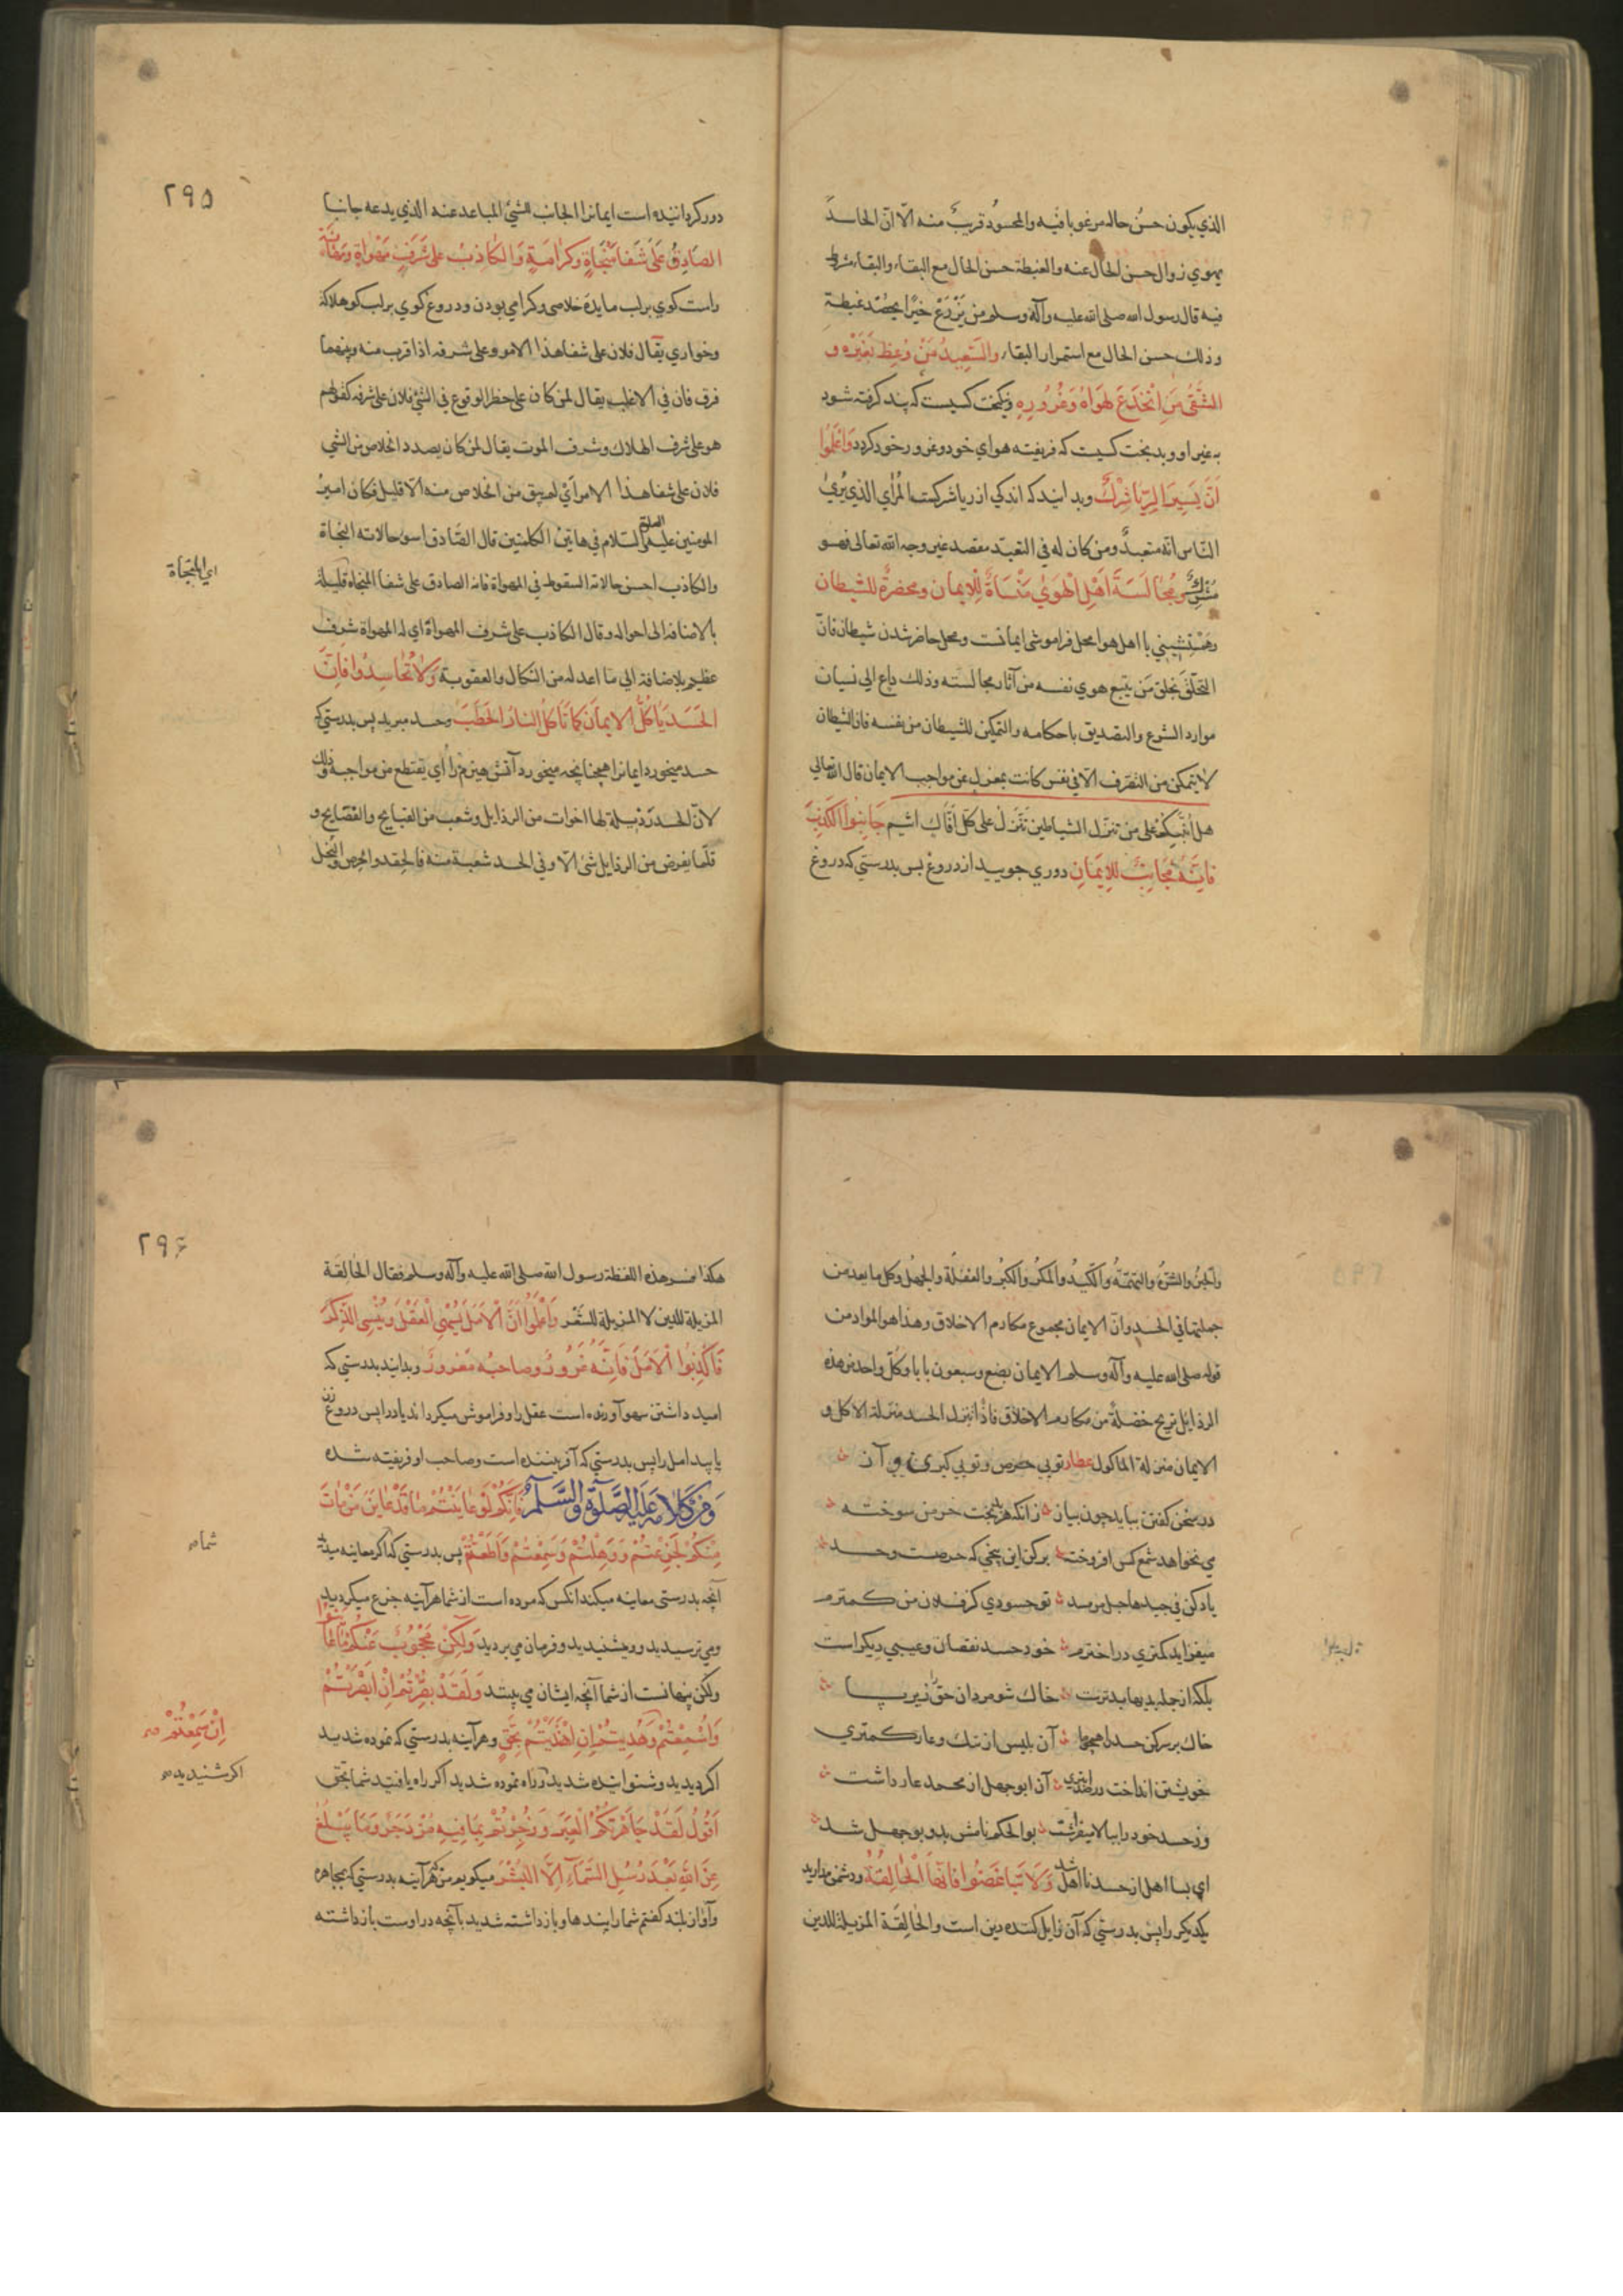 الذي يكون حسن حاله مرغوبا فيه والمحسود قريب منه الّا انّ الحاسد
يهوي زوال حسن الحال عنه والغبطة حسن الحال مع البقاء والبقاء شرط
فيه قال رسول الله صلى الله عليه وآله وسلم من يزرع خيرًا يحصد غبطة
وذلك حسن الحال مع استمرار البقاء والسَّعِيدُ مَنْ وُعِظَ بِغَيْرِهِ و
الشَّقِىُّ مَنِ انْخَدَعَ لِهَوَاهُ وَغُرُورِهِ ونيكبخت كسيست كه پند گرفته شود
به غير او و بدبخت كسيت كه فريفته هواي خود و غرور خود كردد وَاعْلَمُوا
اَنَّ يَسِيرَ الرِّيَاءِ شِرْكٌ وبدانيد كه اندكي از ريا شركست المُرٰاي الذي يُرِيٰ
النّاس انّه متعبدٌ ومن كان له في التعبّد مقصد غير وجه الله تعالى فهو
مُشْرِكٌ ومُجٰالَسَةَ اَهْلِ الْهَوٰي مَنْسَاةٌ لِلْاِيمان ومحضرةٌ للشيطان
وهَمْنِشيني با اهل هوا محل فراموشي ايمانست ومحل حاضر شدن شيطان فانّ
التخلّقَ بخلق مَن يتبع هوي نفسه من آثار مجالسته وذلك داع الي نسيان
موارد الشرع والتصديق باحكامه والتمكين للشيطان من نفسه فان الشيطان
لا يتمكن من التصّرف الّا في نفس كانت بمعزل عن مواجب الايمان قال الله تعالي
هل اُنبّئكم على من تنزّل الشياطين تنزل على كلّ افّاك اثيم جَانِبُوا الْكَذِبَ
فَاِنَّهُ مُجَانِبٌ لِلاِيمَانِ دوري جوييد از دروغ پس بدرستي كه دروغ
٢٩۵
دور كرداننده است ايمانرا الجانب الشئ المباعد عنه الذي يدعه جانبا
الصَادِقُ عَلىٰ شَفَا مَنْجَاةٍ وكَرٰامَةٍ وَالْكٰاذِبُ عَلىٰ شَرَفِ مَهْوٰاةٍ ومَهٰانَةٍ
راست كوي بر لب مايدهٔ خلاصي وكرامي بودن و دروغ كوي بر لب كو هلاكه
وخواري يقال فلان على شفا هذا الامر وعلى شرفه اذا قرب منه وبينهما
فرق فان في الاغلب يقال لمن كان على خطر الوقوع في الشئ فلان على شرفه كقولهم
هو على شرف الهلاك وشرف الموت يقال لمن كان بصدد الخلاص من الشي
فلان على شفا هذا الامر اَيْ لم يبق من الخلاص منه الّا قليل فكان امير
المومنين عليه الصلوة والسّلام في هاتين الكلمتين قال الصّادق اسوء حالاته النجاة
والكاذب احسن حالاته السقوط في المهواة فانه الصادق على شفا المنجاة قليلة
اي المنجاة
بالاضافة الى احواله وقال الكاذب على شرف المهواة اي له المهواة شرف
عظيم بالاضافة الي ما اعد له من النكال والعقوبة وَلَاتُحَاسِدُوا فَاِنّ
الحَسَدَ يَاكُلُ الاِيمَانَ كَمَا تَاكُلُ النَّارُ الحَطَبَ وحسد مبريد پس بدرستي كه
حسد ميخورد ايمانرا همچنانچه ميخورد آتش هيزم را اي يقتطع من مواجبه وذلك
لانّ الحسد رذيلة لها اخوات من الرذايل وشعب من القبايح والفضايح و
قلّما يفرض من الرذايل شئ الّا وفي الحسد شعبة منه فالحقد والحرص والبخل
والجبن والشرهُ والتهمَةُ والكيدُ والمكرُ والكبرُ والغفلة والجهل وكل ما يعد من
جملتها في الحسد وانّ الايمان مجموع مكارم الاخلاق وهذا هو المراد من
قوله صلى الله عليه وآله وسلم الايمان بضع وسبعون بابا وكلّ واحد من هذه
الرذايل تزيح خصلةً من مكارم الاخلاق فاذًا نزل الحسد منزلة الاكل و
الايمان منزلة الماكول عطار تويي حرص وتويي كبري
در سخن كفتن بيايد چون پياز زانكه هر بدبخت خرمن سوخته
مي نخواهد شمع كس افروخته بركن اين بيخي كه حرصت وحسد
ياد كن في جيدها حبل مسد تو حسودي كز فلان من كمترم
ميفزايد كمتري در اخترم خود حسد نقصان وعيبي ديكر است
بلكه از جمله بديها بدترست خاك شو مردان حق را زير پا
خاك بر سر كن حسد را همچو ما آن بليس از ننك وعار كمتري
خويشتن انداخت در صد ابتري آن ابوجهل از محمد عار داشت
وز حسد خود را ببالا ميفراشت بوالحكم نامش بد و بوجهل شد
اي بسا اهل از حسد نااهل شد وَلَا تَبٰاغَضُوا فَاِنَّهَا الْحٰالِقَةُ ودشمن مداريد
يكديكر را پس بدرستي كه آن زايل كننده دين است والحالِقَة المزيلة للدين
٢٩۶
هكذا فسر هذه اللفظة رسول الله صلى الله عليه وآله وسلم فقال الحالِقَة
المزيلة للدين لا المزيلة للشعْر وَاعْلَمُوا اَنَّ الْاَمَلَ يُسْهِي الْعَقْلَ وَيُنْسِي الذِّكْرَ
فَاَكْذِبُوا الْاَمَلَ فَاِنَّهُ غُرُورٌ وصاحبُهُ مَغْرورٌ وبدانيد بدرستي كه
اميد داشتن سهو آورنده است عقل را وفراموش ميكرداند ياد را پس دروغ
يابيد امل را پس بدرستي كه آفريبنده است وصاحب او فريفته شده
وَمِنْ كَلَامِهِ عَلَيْهِ الصَّلَوةُ وَالسَّلَامُ فَاِنَّكُمْ لَوْ عَايَنْتُمْ مَا قَدْ عَايَنَ مَنْ مَاتَ
مِنْكُمْ لَجَزِعْتُمْ وَوَهِلْتُمْ وَسَمِعْتُمْ وَاَطَعْتُمْ پس بدرستي كه اكر معاينه ميديد
شما
آنچه بدرستي معاينه ميكند انكس كه مرده است از شما هرآينه جزع ميكرديد
ومي ترسيديد و ميشنيديد و فرمان مي برديد وَلٰكِنْ مَحْجُوبٌ عَنْكُمْ مَا عَايَنُوا
ولكن پنهانست از شما آنچه ايشان مي بينند وَلَقَدْ بُصِّرْتُمْ اِنْ اَبْصَرْتُمْ
وَاُسْمِعْتُمْ وَهُدِيتُمْ اِنِ اهْتَدَيْتُمْ بِحَقٍّ وهرآينه بدرستي كه نموده شديد
اِنْ سَمِعْتُمْ
اكر ديديد وشنوانيده شديد وراه نموده شديد اكر راه يافتيد شما بحق
اكر شنيديد
اَقُولُ لَقَدْ جَاهَرَتْكُمُ الْعِبَرُ وَزُجِرْتُمْ بِمَا فِيهِ مُزْدَجَرٌ وَمَا يُبَلِّغُ
عَنِ اللهِ بَعْدَ رُسُلِ السَّمَاءِ اِلَّا الْبَشَرُ ميكويم من هرآينه بدرستي كه مجاهره
وآواز بلند كفتم شما را پندها وبازداشته شديد بآنچه در اوست بازداشته